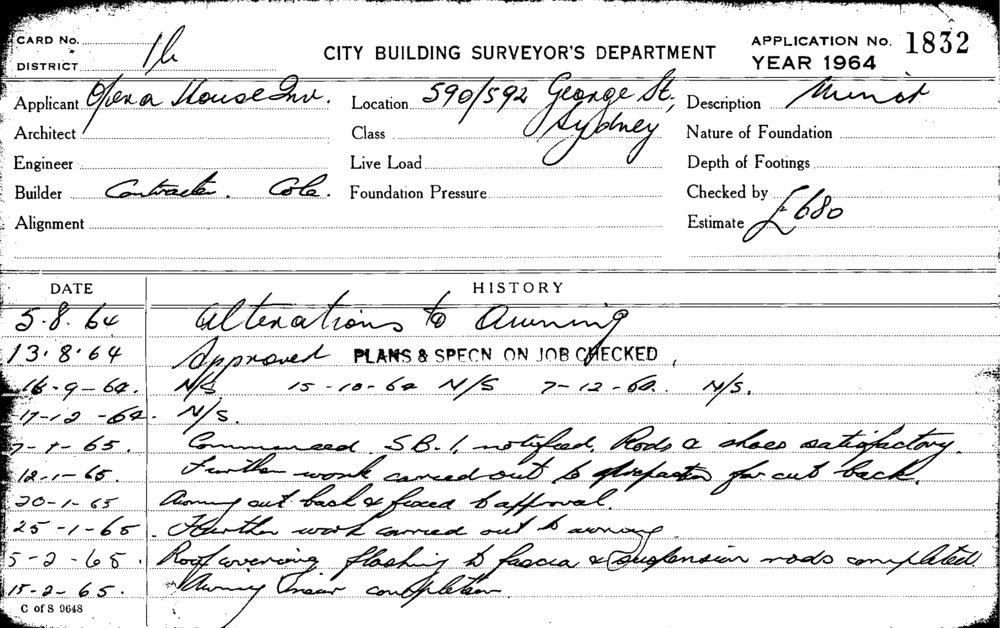 CARD No.
DISTRICT
CITY BUILDING SURVEYOR'S DEPARTMENT
APPLICATION No. 1832
YEAR 1964
Applicant Opera House Inv. Location 590/592 George St., Description Minor
Architect Class Sydney Nature of Foundation
Engineer Live Load Depth of Footings
Builder Contractor. Cole. Foundation Pressure Checked by
Alignment Estimate £680
DATE HISTORY
5.8.64 Alterations to Awning
13.8.64 Approved PLANS & SPECN ON JOB CHECKED
16-9-64. N/S 15-10-64 N/S 7-12-64. N/S.
17-12-64. N/S.
7-1-65. Commenced. S.B.I. notified. Rods & shoes satisfactory.
12-1-65. Further work carried out to for cut back.
20-1-65 Awning cut back & faced to approval.
25-1-65. Further work carried out to awning
5-2-65. Roof covering flashing to fascia & suspension rods completed
15-2-65. Awning near completion.
C of S 9648